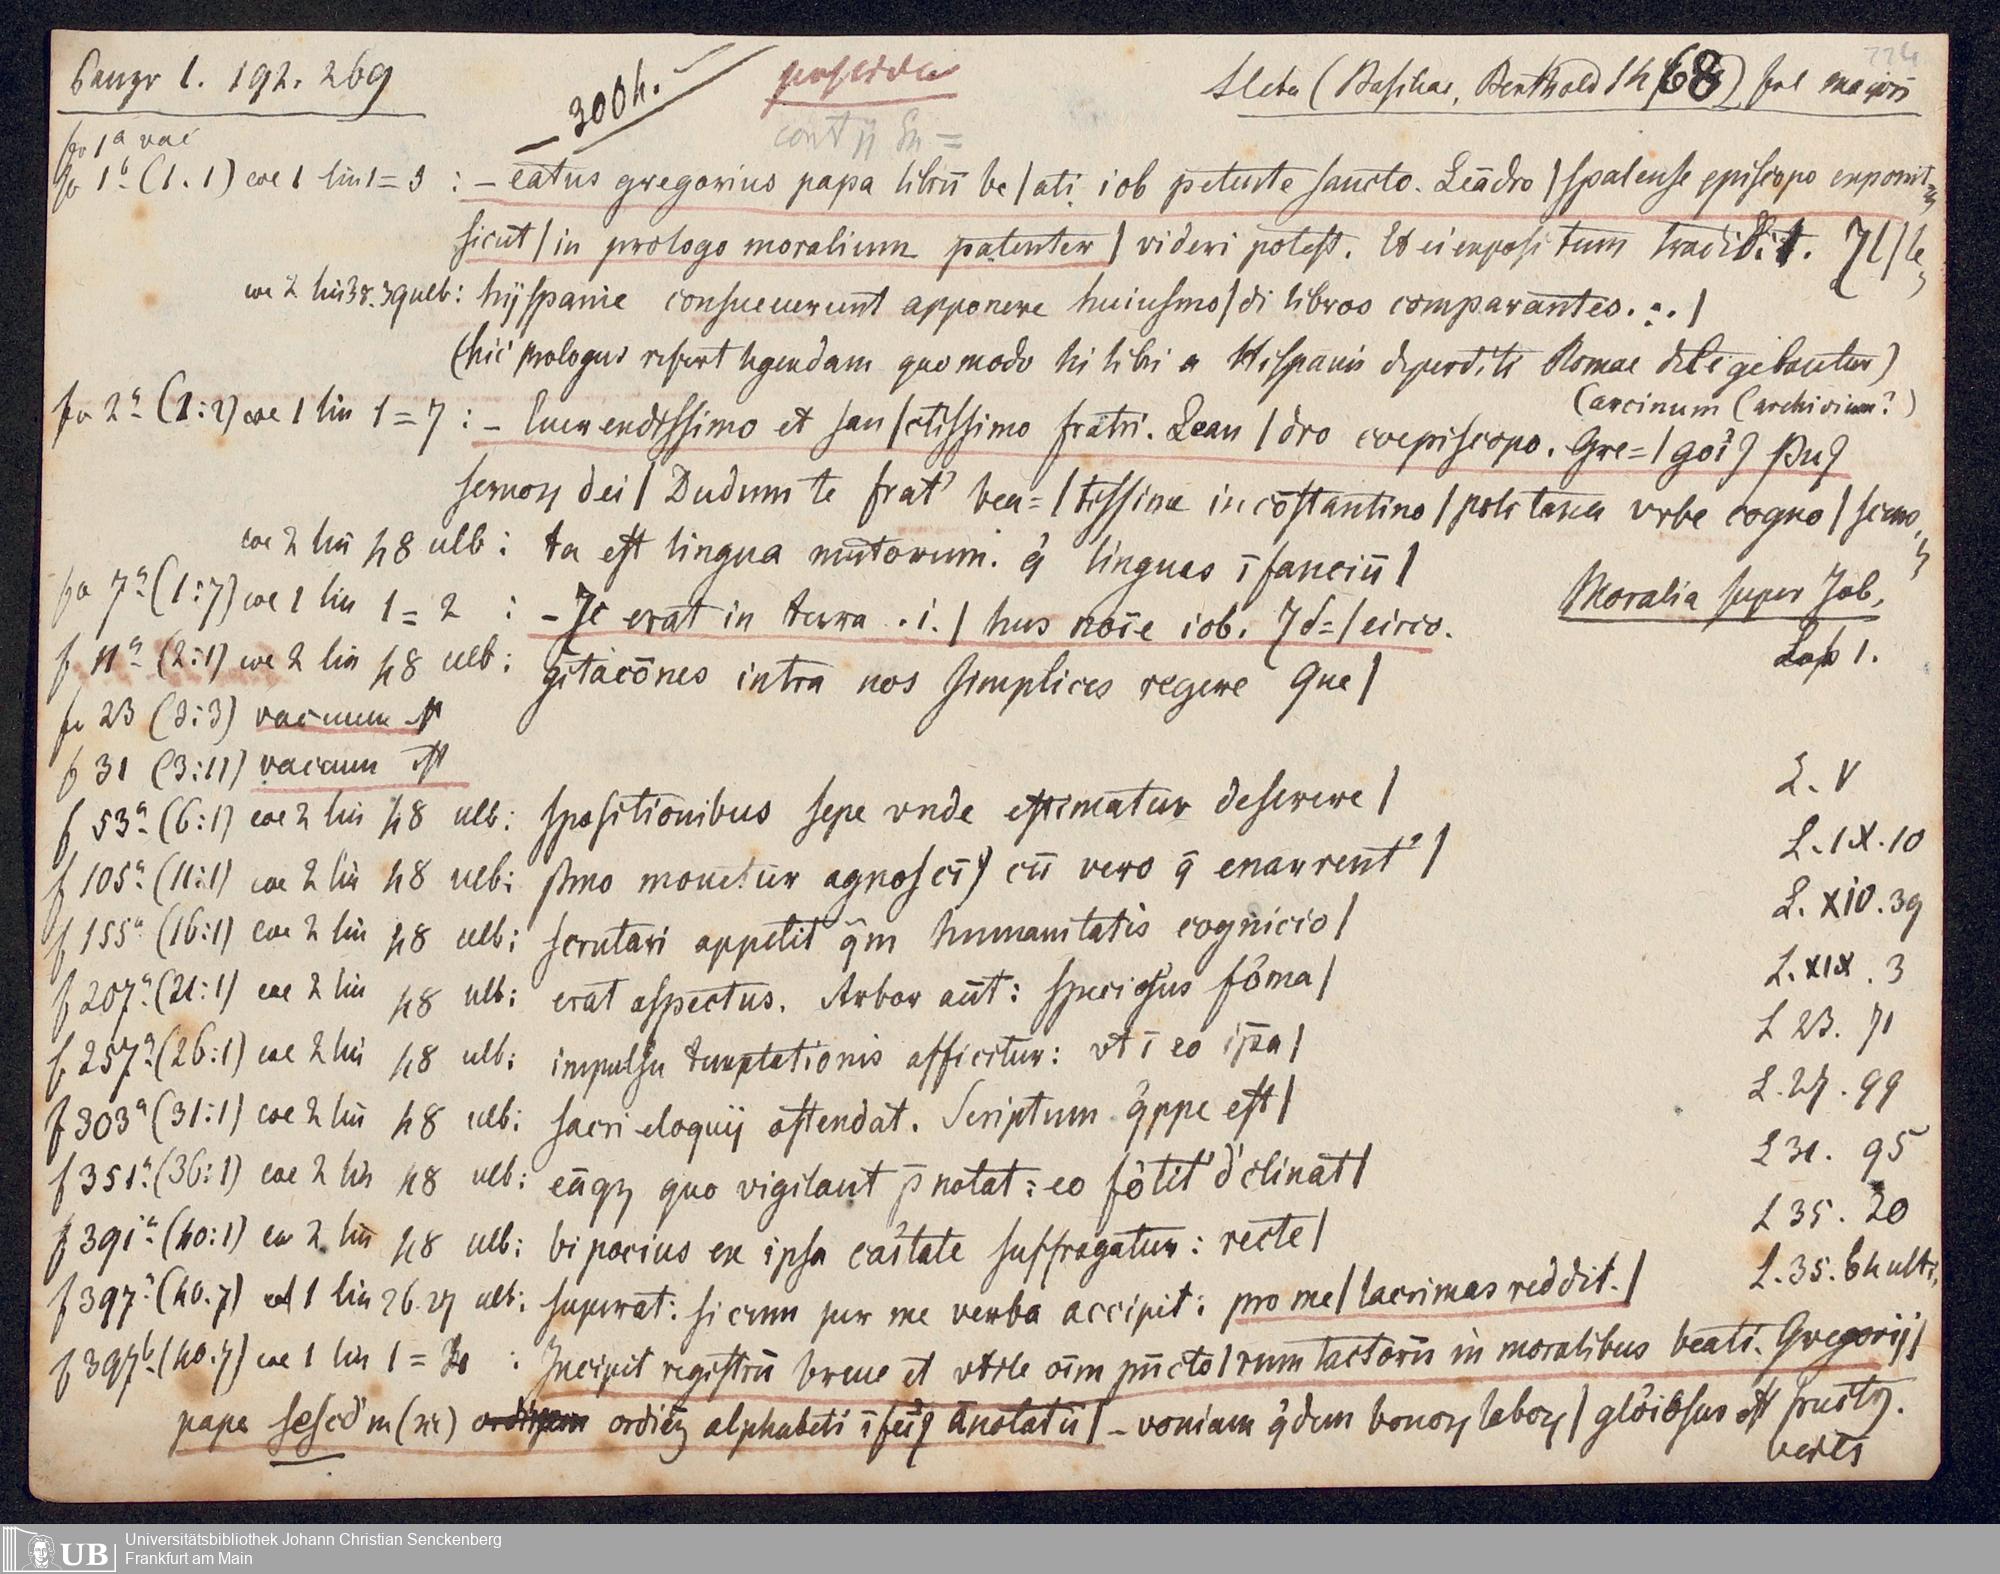 Panzr 1. 192. 269
300h.
774
s l et a (Basileae, Berthold 1468) fol maioris
fo 1a vac
fo 1b (1.1) coe 1 lin 1=5 : – eatus gregorius papa librū be/ati iob petente sancto. Leādro/spalense episcopo exponit
sicut/in prologo moralium patenter/videri potest. Et ei expositum tradidit. /le
coe 2 lin 38.39 ulb: hÿspanie consueuerunt apponere huiusmo/di libros comparantes. :. /
(hic prologus refert legendam quomodo hi libri a Hispanis deperditi Romae deligebantur)
(arcinum (archivium?)
fo 2a (1:2) coe 1 lin 1=7 : – Euerendissimo et san/ctissimo fratri. Lean/dro coepiscopo. Gre=/
dei/Dudum te frat' bea=/tissime in cōstantino/politana vrbe cogno/scens
coe 2 lin 48 ulb: ta est lingua mutorum. q̄ linguas īfanciū/
fo 7a (1:7) coe 1 lin 1=2 : – Ir erat in terra .i./hus noīe iob. Id=/circo.
Moralia super Job,
f 11a (2:1) coe 2 lin 48 ulb: gitacōnes intra nos simplices regere que/
Lap 1.
fo 23 (3:3) vacuum est
f 31 (3:11) vacuum est
f 53a (6:1) coe 2 lin 48 ulb: spositionibus sepe vnde estimatur deserere/
L. V
f 105a (11:1) coe 2 lin 48 ulb: monetur agnosci cū vero q̄ enarrent'/
L. IX. 10
f 155a (16:1) coe 2 lin 48 ulb: scrutari appetit q̄m humanitatis cognicio/
L. XIV. 39
f 207a (21:1) coe 2 lin 48 ulb: erat aspectus. Arbor aūt: speciosus fōma/
L. XIX. 3
f 257a (26:1) coe 2 lin 48 ulb: impulsu temptationis afficitur: vt ī eo ip̄a/
L 23. 71
f 303a (31:1) coe 2 lin 48 ulb: sacri eloquij ostendat. Scriptum q̄ppe est/
L. 27. 99
f 351a (36:1) coe 2 lin 48 ulb: eāqz quo vigilant p̄notat: eo fōtit' d'clinat/
L 31. 95
f 391a (40:1) coe 2 lin 48 ulb: bi pocius ex ipsa caītate suffragatur: recte/
L 35. 20
f 397a (40.7) col 1 lin 26.27 ulb: superat: si cum per me verba accipit: pro me/lacrimas reddit./
L. 35. 64 ulti,
f 397b (40.7) coe 1 lin 1= : Incipit registrū breue et vtile oīm pūcto/rum tactorū in moralibus beati. Gregorij/
pape (sic) ordiēz alphabeti ānotatū/– voniam q̄dem bonoꝝ laboꝝ/glōiosus est fructꝰ.
vertis
UB
Universitätsbibliothek Johann Christian Senckenberg
Frankfurt am Main